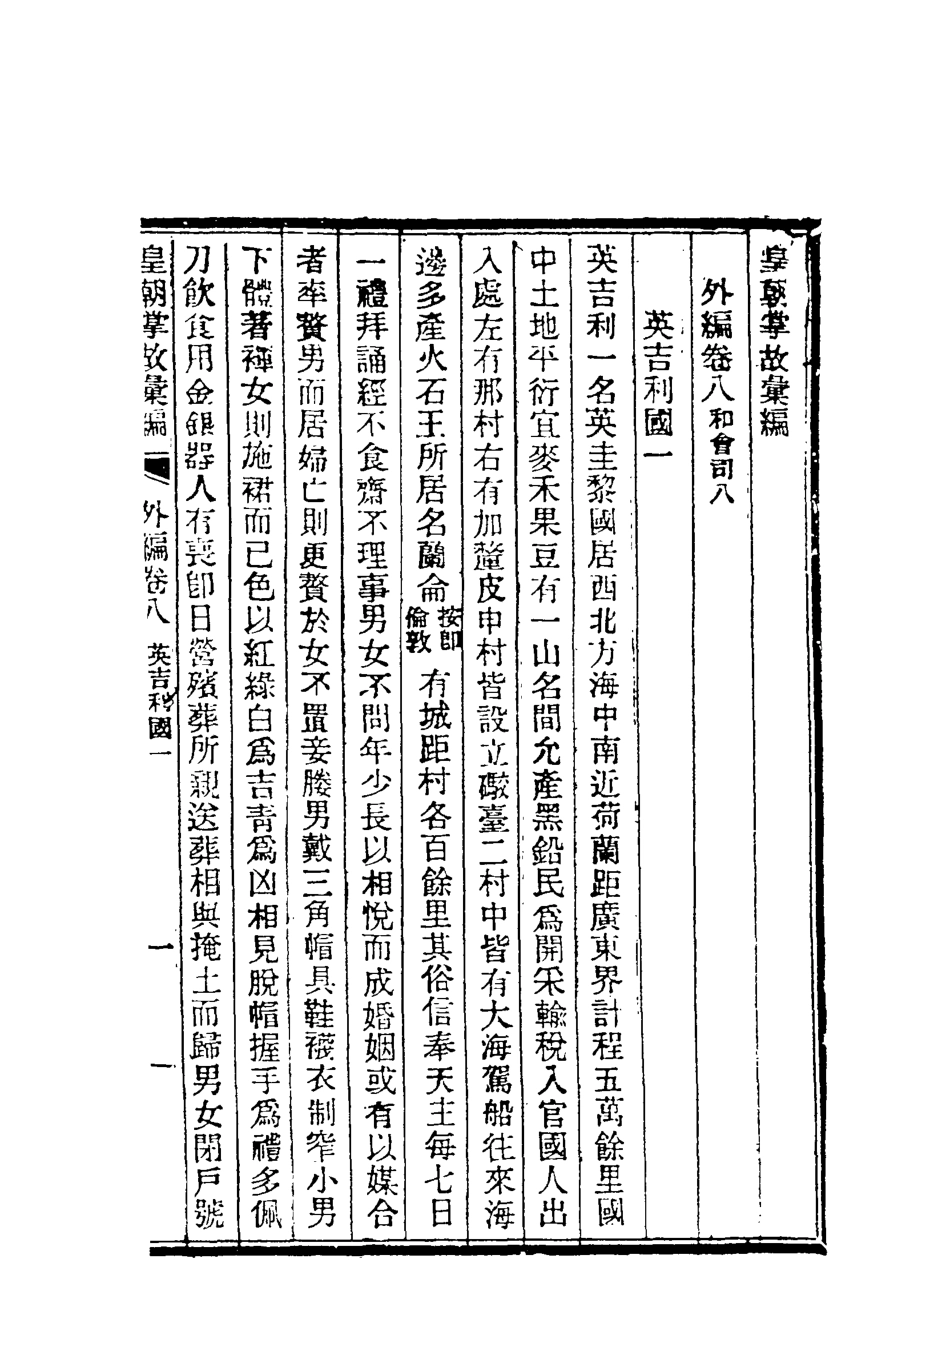 皇朝掌故彙編
外編卷八和會司八
英吉利國一
英吉利一名英圭黎國居西北方海中南近荷蘭距廣東界計程五萬餘里國
中土地平衍宜麥禾果豆有一山名間允產黑鉛民爲開采輸稅入官國人出
入處左有那村右有加釐皮申村皆設立礮臺二村中皆有大海駕船往來海
邊多產火石王所居名蘭侖按卽倫敦有城距村各百餘里其俗信奉天主每七日
一禮拜誦經不食齋不理事男女不問年少長以相悅而成婚姻或有以媒合
者率贅男而居婦亡則更贅於女不置妾媵男戴三角帽具鞋襪衣制窄小男
下體著褌女則施裙而已色以紅綠白爲吉青爲凶相見脫帽握手爲禮多佩
刀飲食用金銀器人有喪卽日營殯葬所親送葬相與掩土而歸男女閉戶號
皇朝掌故彙編 外編卷八 英吉利國一 一 一